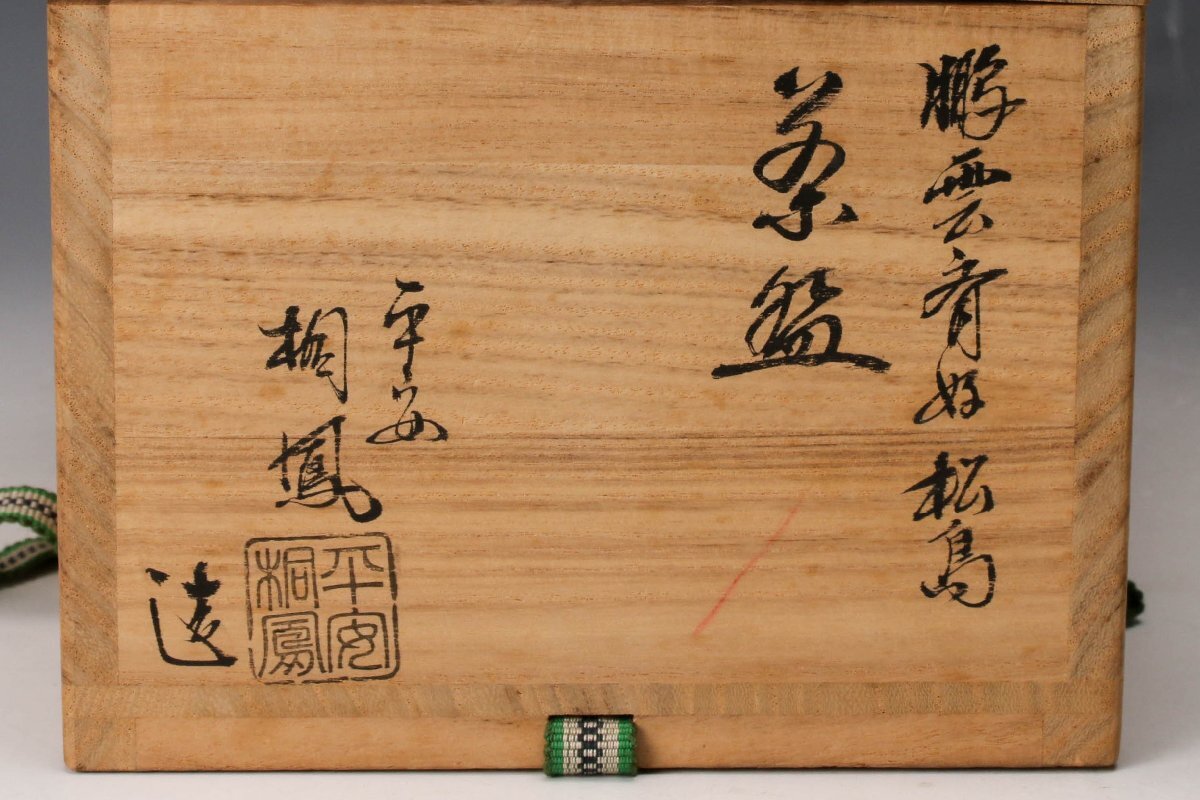 鵬雲斎好 松島
茶盌
平安
桐鳳
造
平安
桐鳳